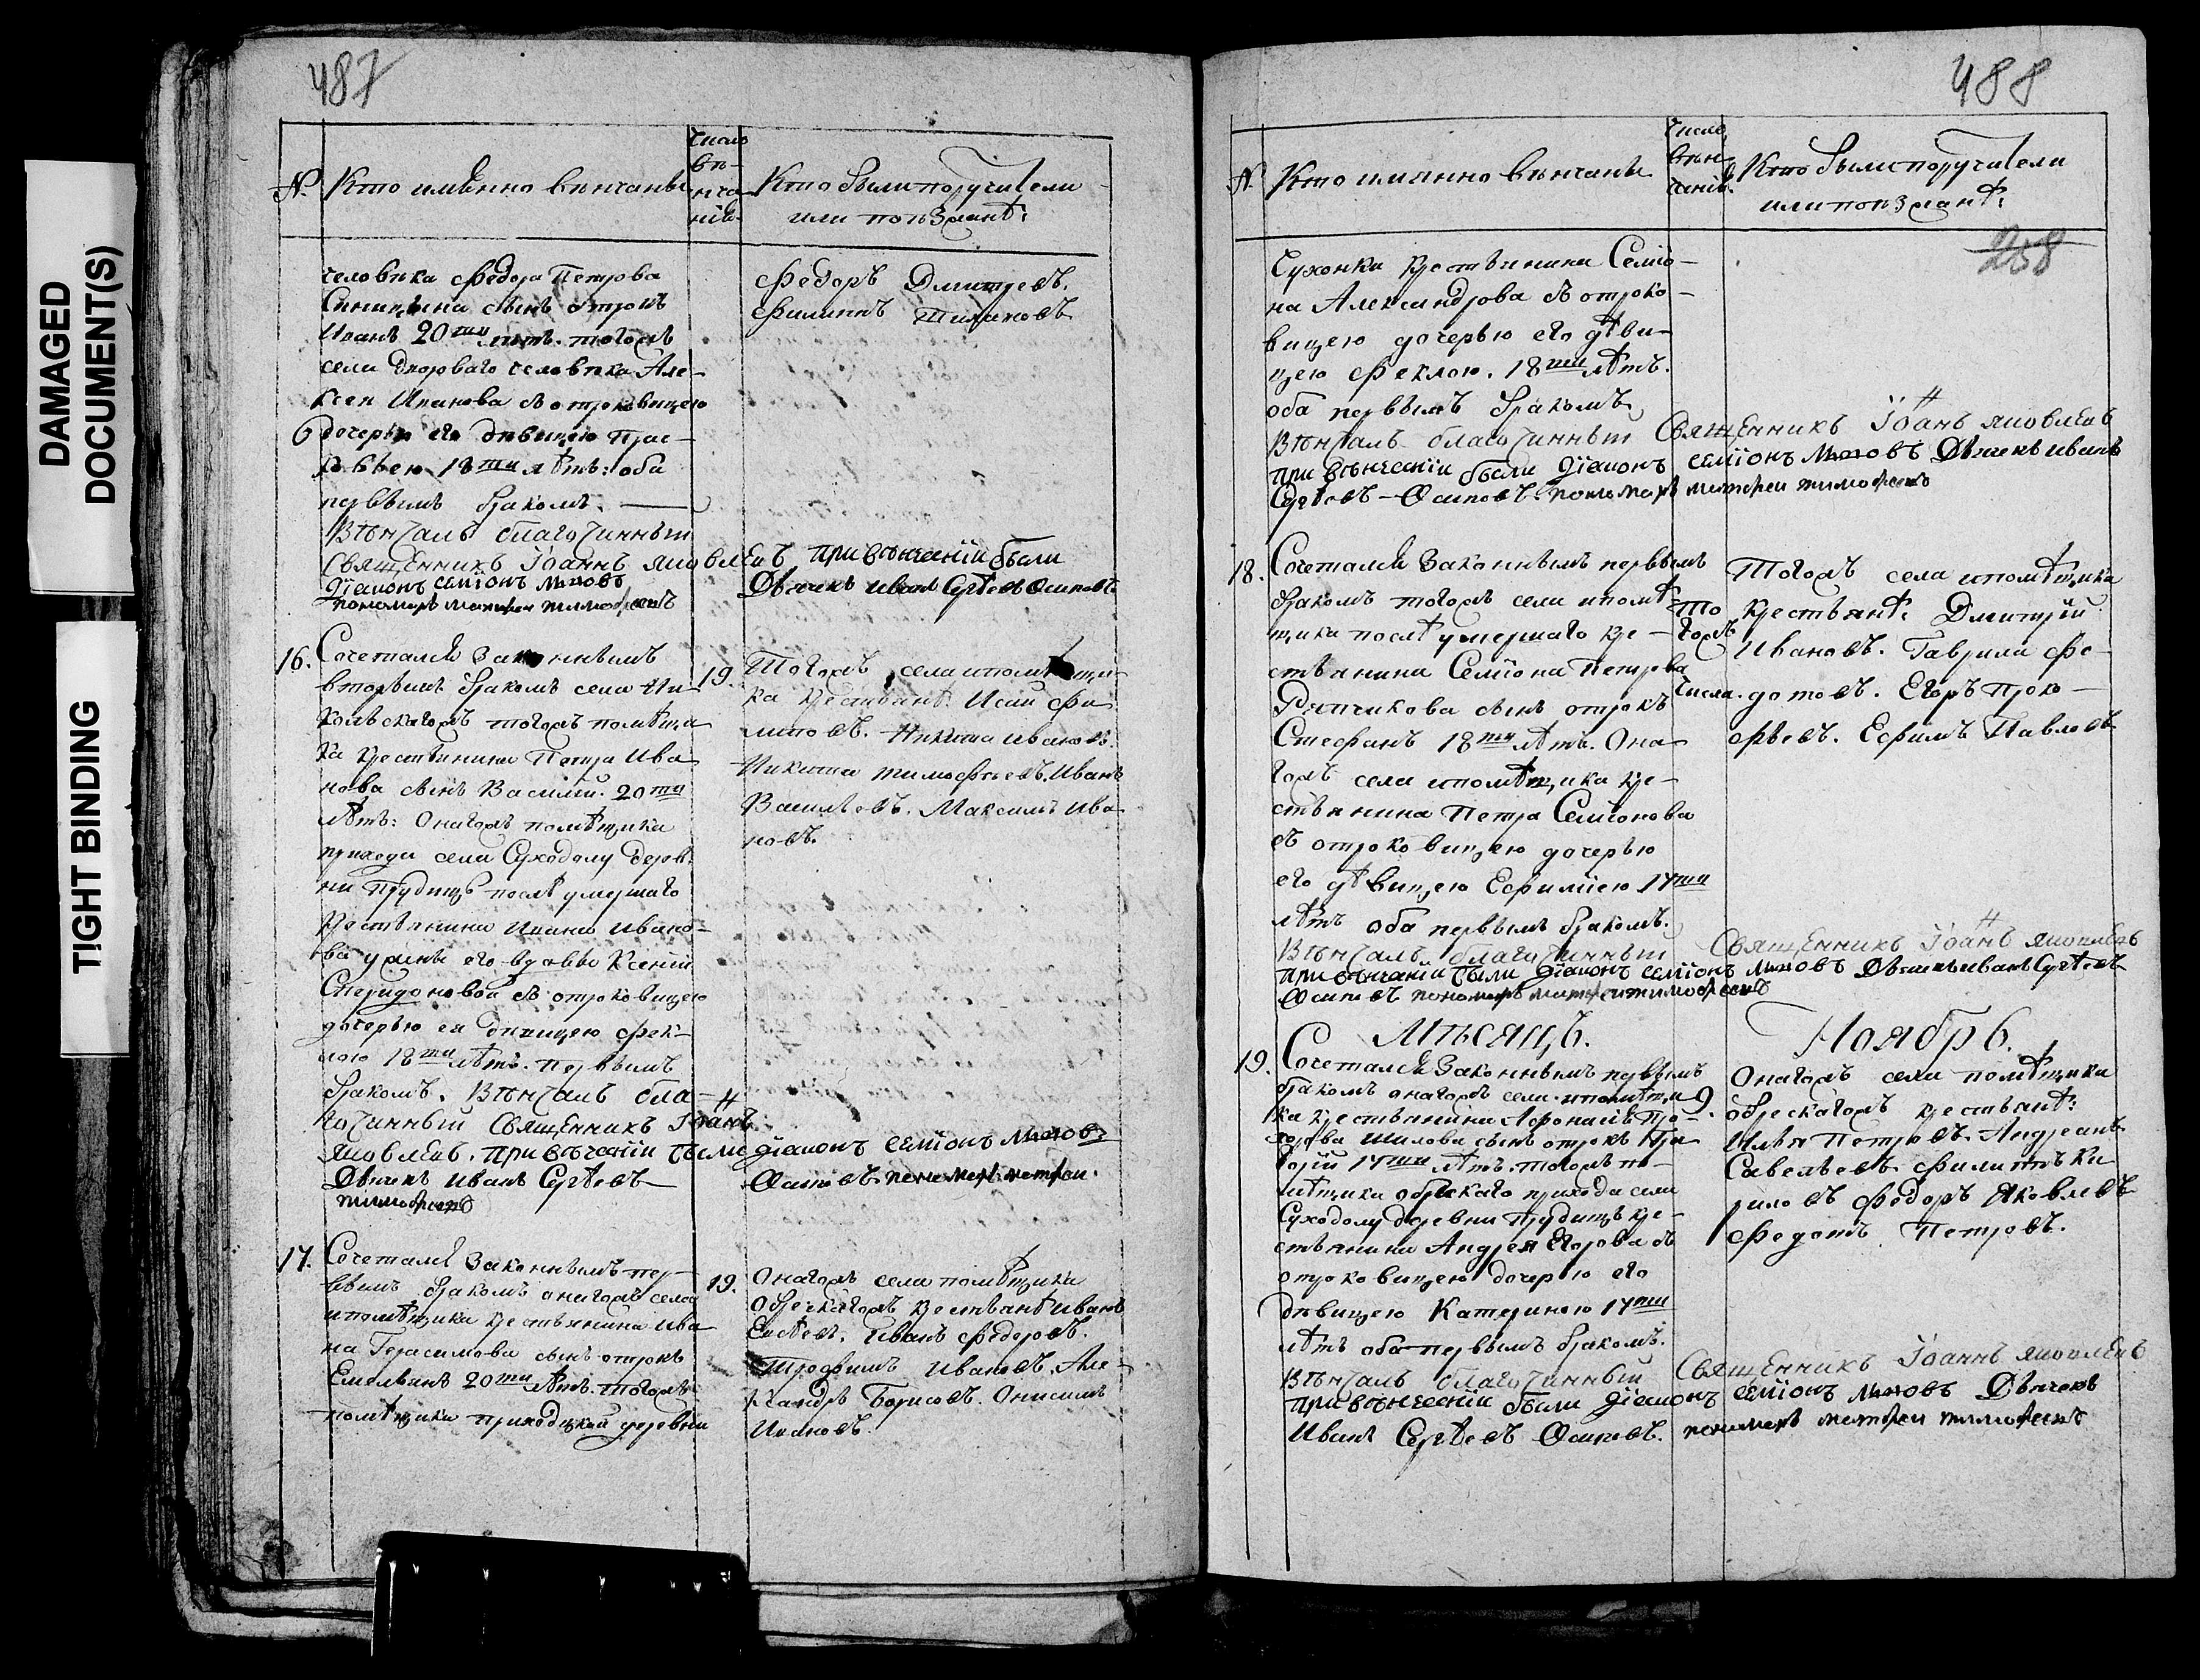 DAMAGED
DOCUMENT(S)
TIGHT BINDING
487
№
Кто имянно венчаны
Число
вѣ-
нча
нія
Кто были поручители
или поѣзжанѣ:
человѣка Федора Петрова
Синицына сынъ отрокъ
Иванъ 20ти лѣтъ. тогожъ
села дворваго человѣка Але-
ксея Иванова съ отроковицею
дочерью его дѣвицею Прас-
ковьею 18ти лѣтъ: оба
первымъ бракомъ.
Вѣнчалъ благочинный
Священникъ Іоаннъ Яковлевъ при вѣнчаніи были
Діаконъ Семіонъ Дьячекъ Иванъ Сергѣевъ Осиповъ
пономарь матфеи тимофеевъ
Федоръ Дмитревъ.
Филипъ
16.
Сочетался законнымъ
вторымъ бракомъ села Ни-
кольскагожъ тогожъ помѣщи
ка крестьянина Петра Ива
нова сынъ Василий. 20ти
лѣтъ: Онагожъ помѣщика
прихода села Суходолу дерев
ни Прудищъ послѣ умершаго
крестьянина Ивана Ивано-
ва у жены его вдовы Ксеніи
Спиридоновой съ отроковицею
дочерью ея дѣвицею Фек-
лою 18ти лѣтъ. первымъ
бракомъ. Вѣнчалъ бла-
гочинный Священникъ Іоанъ
Яковлевъ. при вѣнчаніи были діаконъ семіонъ
Дьячекъ Иванъ Сергѣевъ Осиповъ пономарь матфеи
тимофеевъ
19.
Тогожъ села и помѣщи-
ка крестьянѣ: Исай Фи
липовъ. Никита Ивановъ.
Никита Тимофѣевъ. Иванъ
Васильевъ. Максимъ Ива
новъ.
17.
Сочетался законнымъ пер-
вымъ бракомъ онагожъ села
и помѣщика крестьянина Ива
на Герасимова сынъ отрокъ
Емельянъ 20ти лѣтъ. тогожъ
помѣщика приходской деревни
19.
Онагожъ села помѣщика
крестьянѣ Иванъ
Евсѣевъ. Иванъ Федоровъ.
Трофимъ Ивановъ. Але-
ксандръ Борисовъ. Онисимъ
Ивановъ.
488
№
Кто имянно венчаны
Число
вѣн-
чанія.
Кто были поручители
или поѣзжанѣ:
258
Сухонки крестьянина Семіо-
на Александрова съ отроко-
вицею дочерью его дѣви-
цею Феклою. 18ти лѣтъ.
оба первымъ бракомъ
Вѣнчалъ благочинный Священникъ Іоанъ Яковлевъ
при вѣнчаніи были Діаконъ семіонъ Дьячекъ Иванъ
Сергѣевъ Осиповъ пономарь матфеи тимофеевъ
18.
Сочетался законнымъ первымъ
бракомъ тогожъ села и помѣ
щика послѣ умершаго кре-
стьянина Семіона Петрова
Рѣпчикова сынъ отрокъ
Стефанъ 18ти лѣтъ. Она
гожъ села и помѣщика кре-
стьянина Петра Семіонова
съ отроковицею дочерью
его дѣвицею Ефиміею 17ти
лѣтъ оба первымъ бракомъ.
Вѣнчалъ благочинный Священникъ Іоанъ Яковлевъ
при вѣнчаніи были Діаконъ семіонъ Дьячекъ Иванъ Сергѣевъ
Осиповъ пономарь матфеи тимофеевъ
То
гожъ
числа.
Тогожъ села и помѣщика
крестьянѣ: Дмитрій
Ивановъ. Гаврила Фе-
дотовъ. Егоръ Проко-
фьевъ. Ефимъ Павловъ
Мѣсяцъ. Ноябрь.
19.
Сочетался законнымъ первымъ
бракомъ онагожъ села и помѣщи
ка крестьянина Афонасія Про-
хорова Шилова сынъ отрокъ Гри
горій 17ти лѣтъ. тогожъ по-
мѣщика прихода села
Суходолу деревни Прудищъ кре-
стьянина Андрея Егорова съ
отроковицею дочерью его
дѣвицею Катериною 17ти
лѣтъ оба первымъ бракомъ.
Вѣнчалъ благочинный Священникъ Іоаннъ Яковлевъ
при вѣнчаніи были діаконъ семіонъ Дьячекъ
Иванъ Сергѣевъ Осиповъ. пономарь матфеи тимофеевъ
9.
Онагожъ села помѣщика
крестьянѣ:
Илья Петровъ. Андреанъ
Савельевъ. Филипъ Ки
риловъ Федоръ Яковлевъ
Федотъ Петровъ.